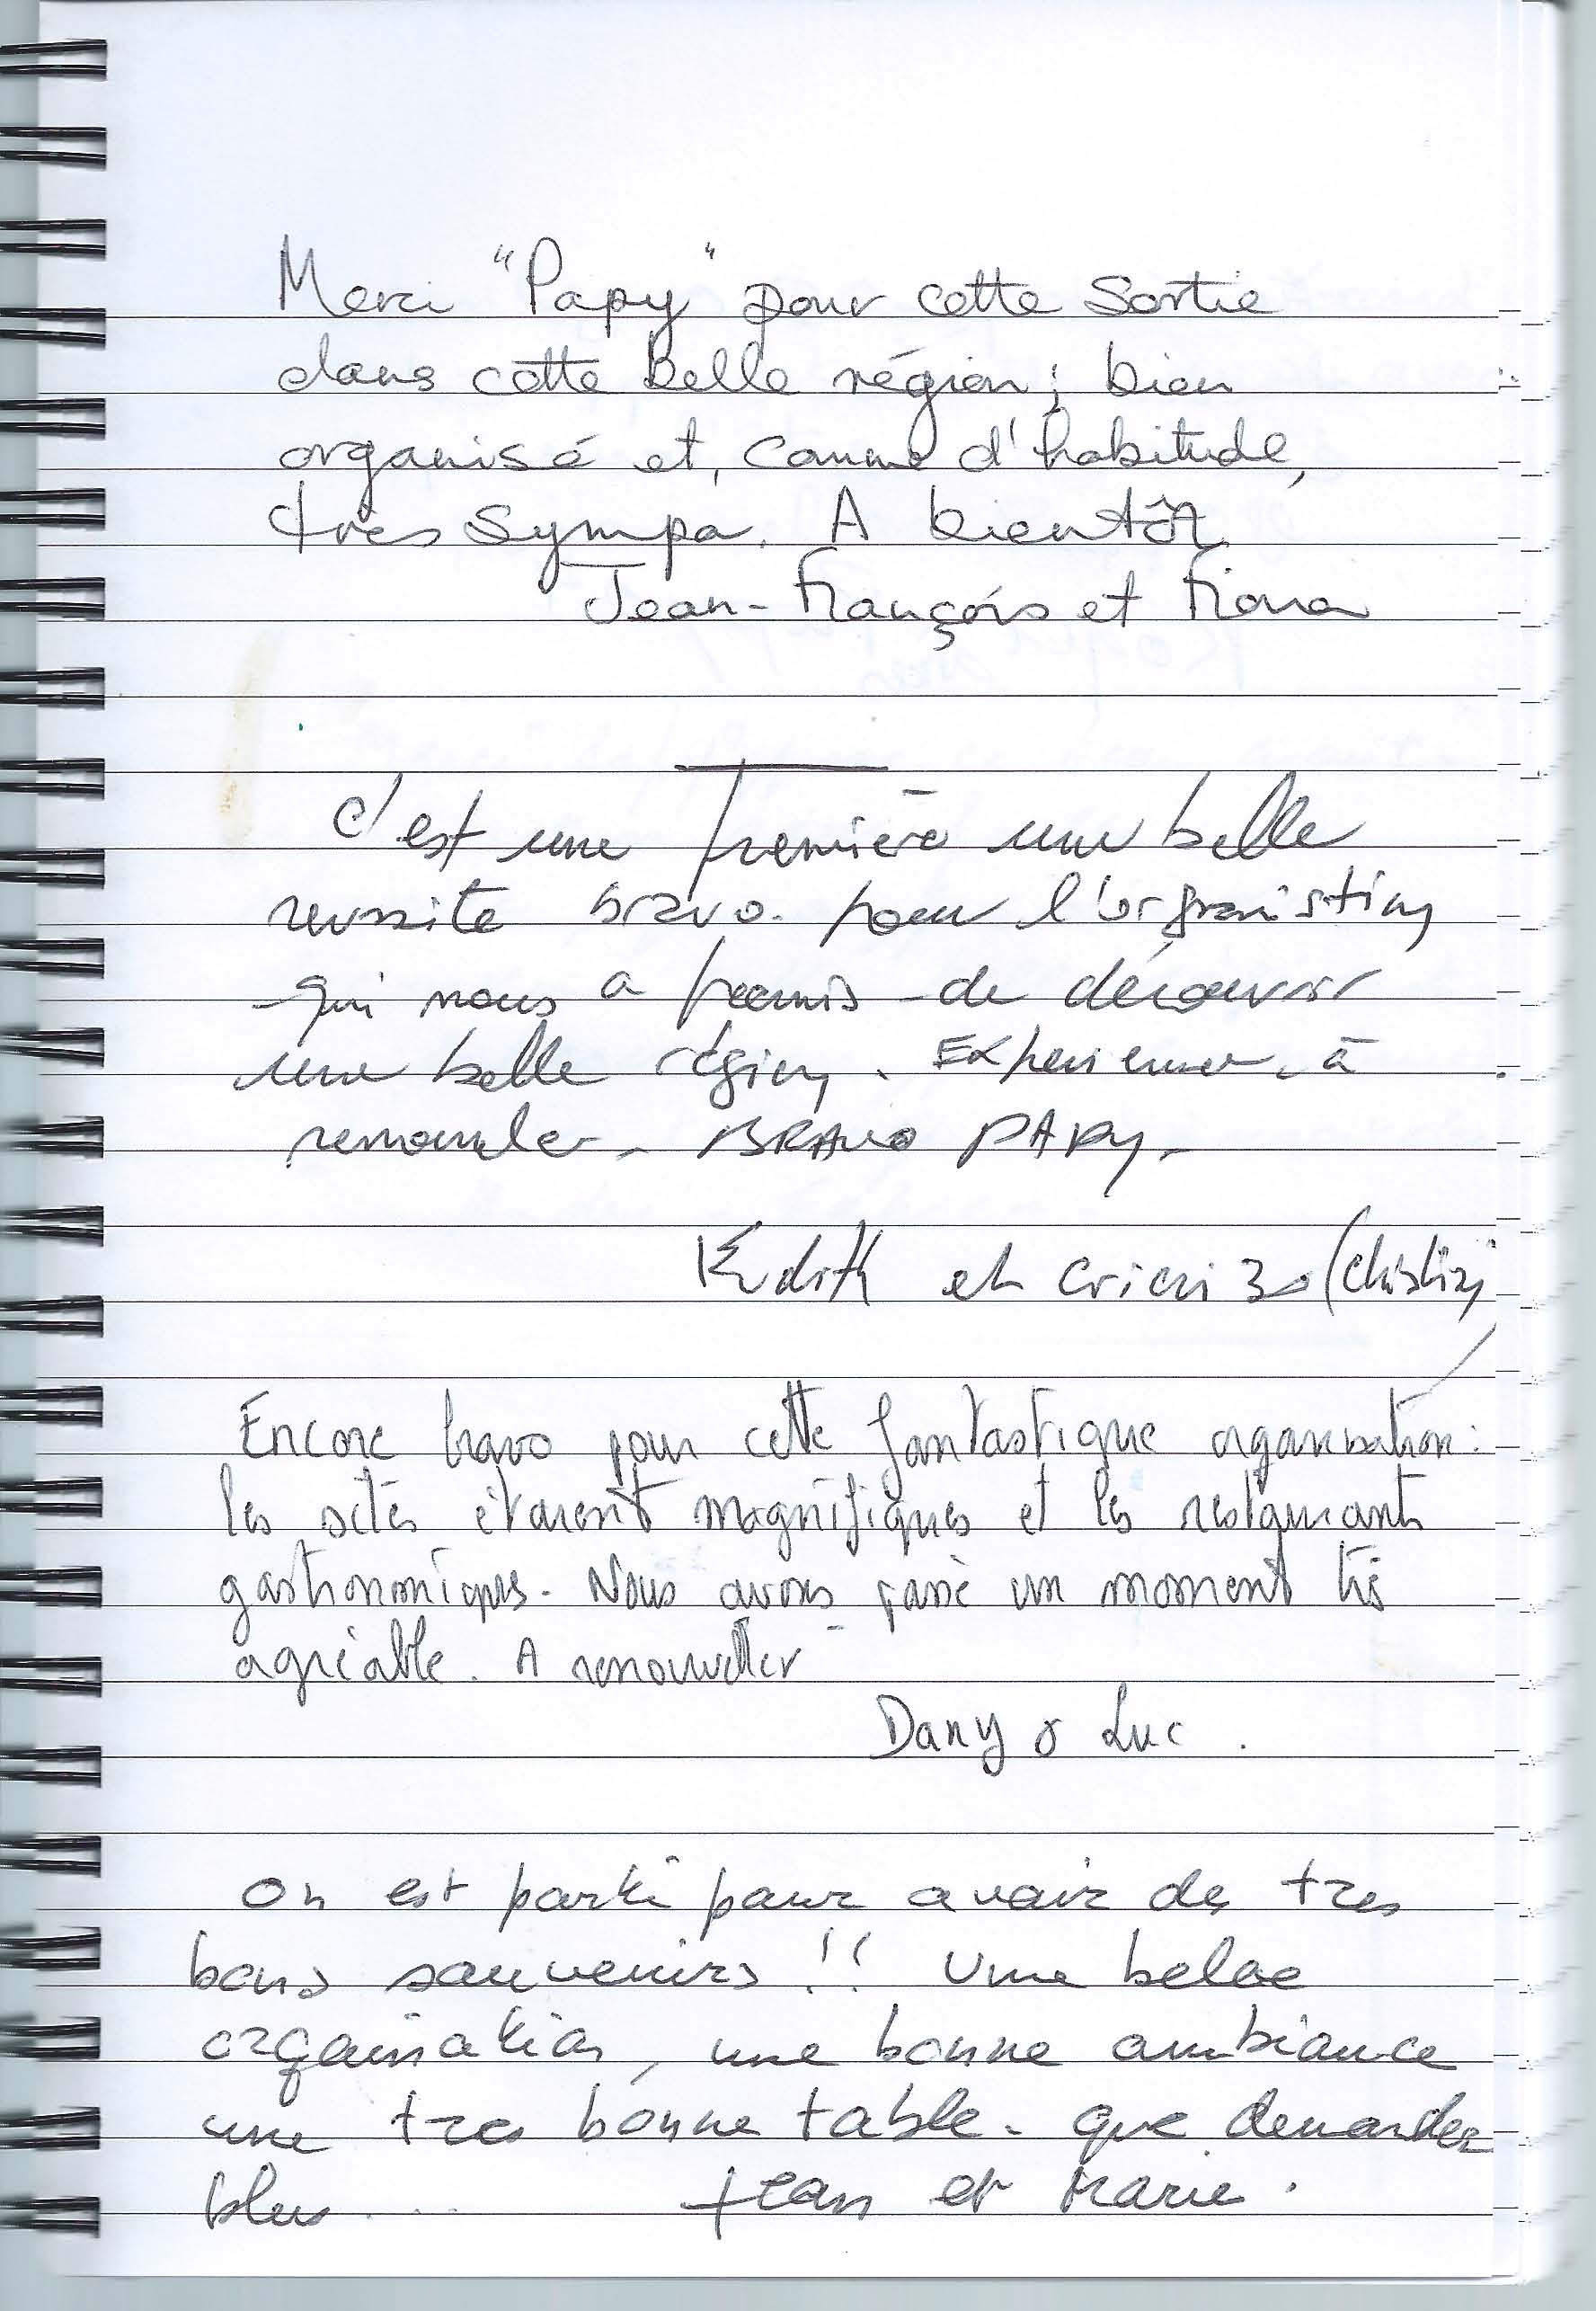 Merci "Papy" pour cette sortie
dans cette belle région; bien
organisé et, comme d'habitude,
très sympa. A bientôt
Jean-François et Fiona
C'est une première une belle
reussite bravo. pour l'organistion
qui nous a permis de découvrir
une belle région. Experience à
renouveler. BRAVO PAPY.
Edith et cricri 30 (christian)
Encore bravo pour cette fantastique organisation:
les sites étaient magnifiques et les restaurants
gastronomiques. Nous avons passé un moment très
agréable. A renouveller
Dany & Luc.
On est parti pour avoir de tres
bons souvenirs !! Une belle
organisation, une bonne ambiance
une tres bonne table. que demander
plus.... Jean et Marie.